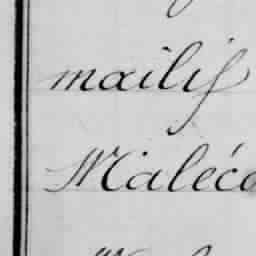 mailif
Maléco